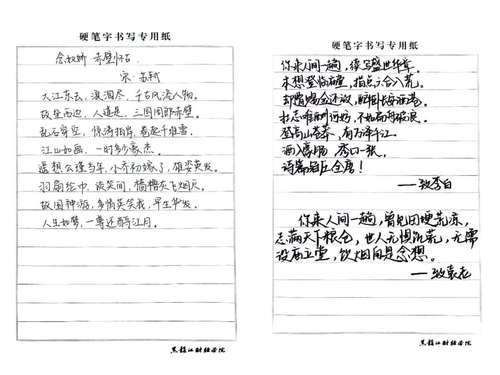 硬笔字书写专用纸
念奴娇 赤壁怀古
宋·苏轼
大江东去,浪淘尽,千古风流人物。
故垒西边,人道是,三国周郎赤壁。
乱石穿空,惊涛拍岸,卷起千堆雪。
江山如画,一时多少豪杰。
遥想公瑾当年,小乔初嫁了,雄姿英发。
羽扇纶巾,谈笑间,樯橹灰飞烟灭。
故国神游,多情应笑我,早生华发。
人生如梦,一尊还酹江月。
黑龙江财经学院
硬笔字书写专用纸
你来人间一趟,续写盛世华章。
未想登临庙堂,指点六合八荒。
却
登高山
酒入豪肠,秀口一张,
诗篇
——致李白
你来人间一趟,曾见田埂荒凉,
志满天下粮仓,世人无惧饥荒,无需
设庙立堂,炊烟间是念想。
——致袁老
黑龙江财经学院